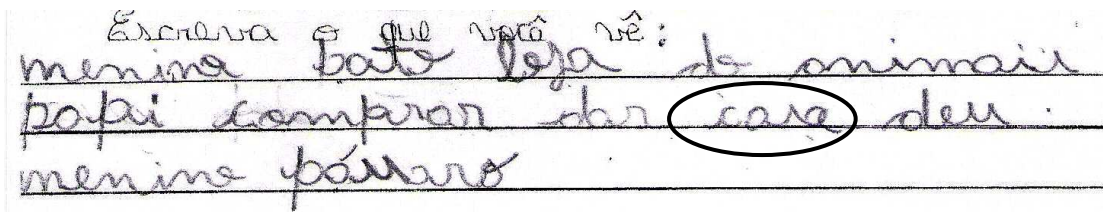 Escreva o que você vê:
menina bato loja de animais
papai comprar dar casa deu.
menina pássaro